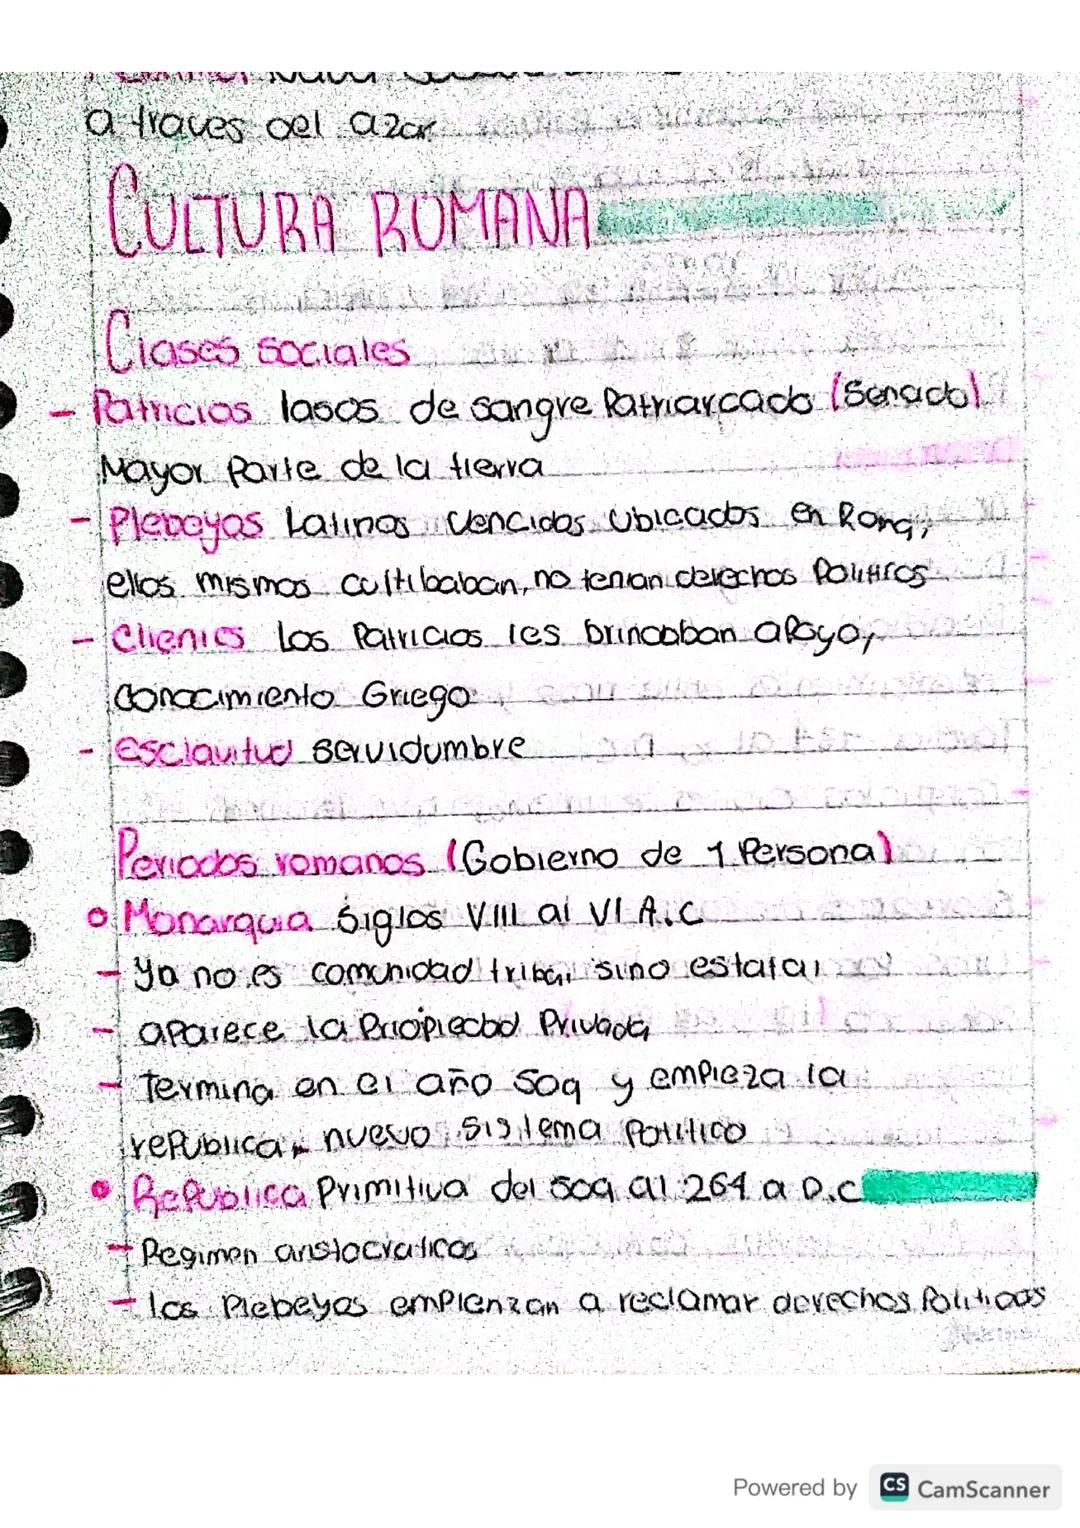 a traves del azar
CULTURA ROMANA
Clases sociales
- Patricios lasos de sangre Patriarcado (Senado)
Mayor Parte de la tierra
- Plebeyos Latinos Vencidos Ubicados en Roma,
ellos mismos cultibaban, no tenian derechos Politicos
- Clientes Los Patricios les brindaban apoyo,
conocimiento Griego
- Esclavitud servidumbre
Periodos romanos (Gobierno de 1 Persona)
Monarquia Siglos VIII al VI A.C
- Ya no es comunidad tribal sino estatal
- aparece la Propiedad Privada
- Termina en el año 509 y empieza la
republica, nuevo sistema Politico
Republica Primitiva del 509 al 264 a D.C
- Regimen aristocraticos
- los Plebeyos empienzan a reclamar derechos Politicos
Powered by CS CamScanner